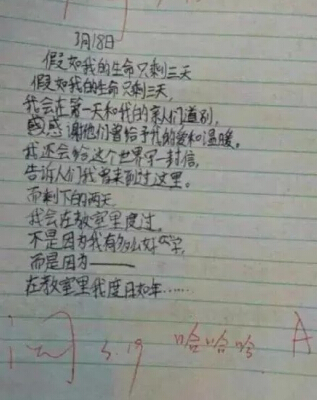 3月18日
假如我的生命只剩三天
假如我的生命只剩三天,
我会在第一天和我的亲人们道别,
感谢他们曾给予我的爱和温暖。
我还会给这个世界写一封信,
告诉人们我曾来到过这里。
而剩下的两天
我会在教室里度过,
不是因为我有多么好学,
而是因为——
在教室里我度日如年……
阅 3.19 哈哈哈 A